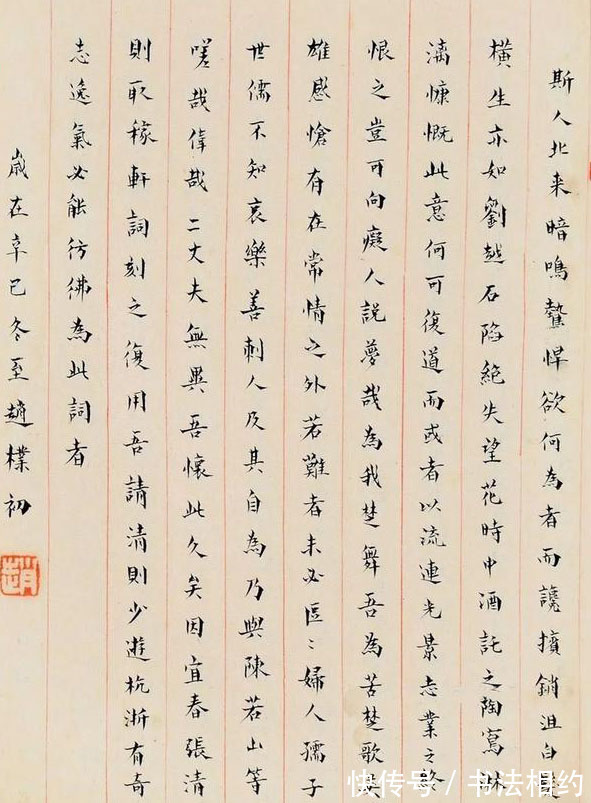 斯人北来暗鳴驇悍欲何為者而讒擯銷沮白
橫生亦如劉越石陷絕失望花時中酒託之陶寫淋
漓慷慨此意何可復道而或者以流連光景志業之終
恨之豈可向癡人說夢哉為我楚舞吾為苦楚歌
雄感愴有在常情之外若難者未必區〻婦人孺子
世儒不知哀樂善刺人及其自為乃與陳若山等
嗟哉偉哉二丈夫無異吾懷此久矣因宜春張清
則取稼軒詞刻之復用吾請清則少遊杭浙有奇
志逸氣必能彷彿為此詞者
歲在辛巳冬至趙樸初
趙
快传号/书法相约